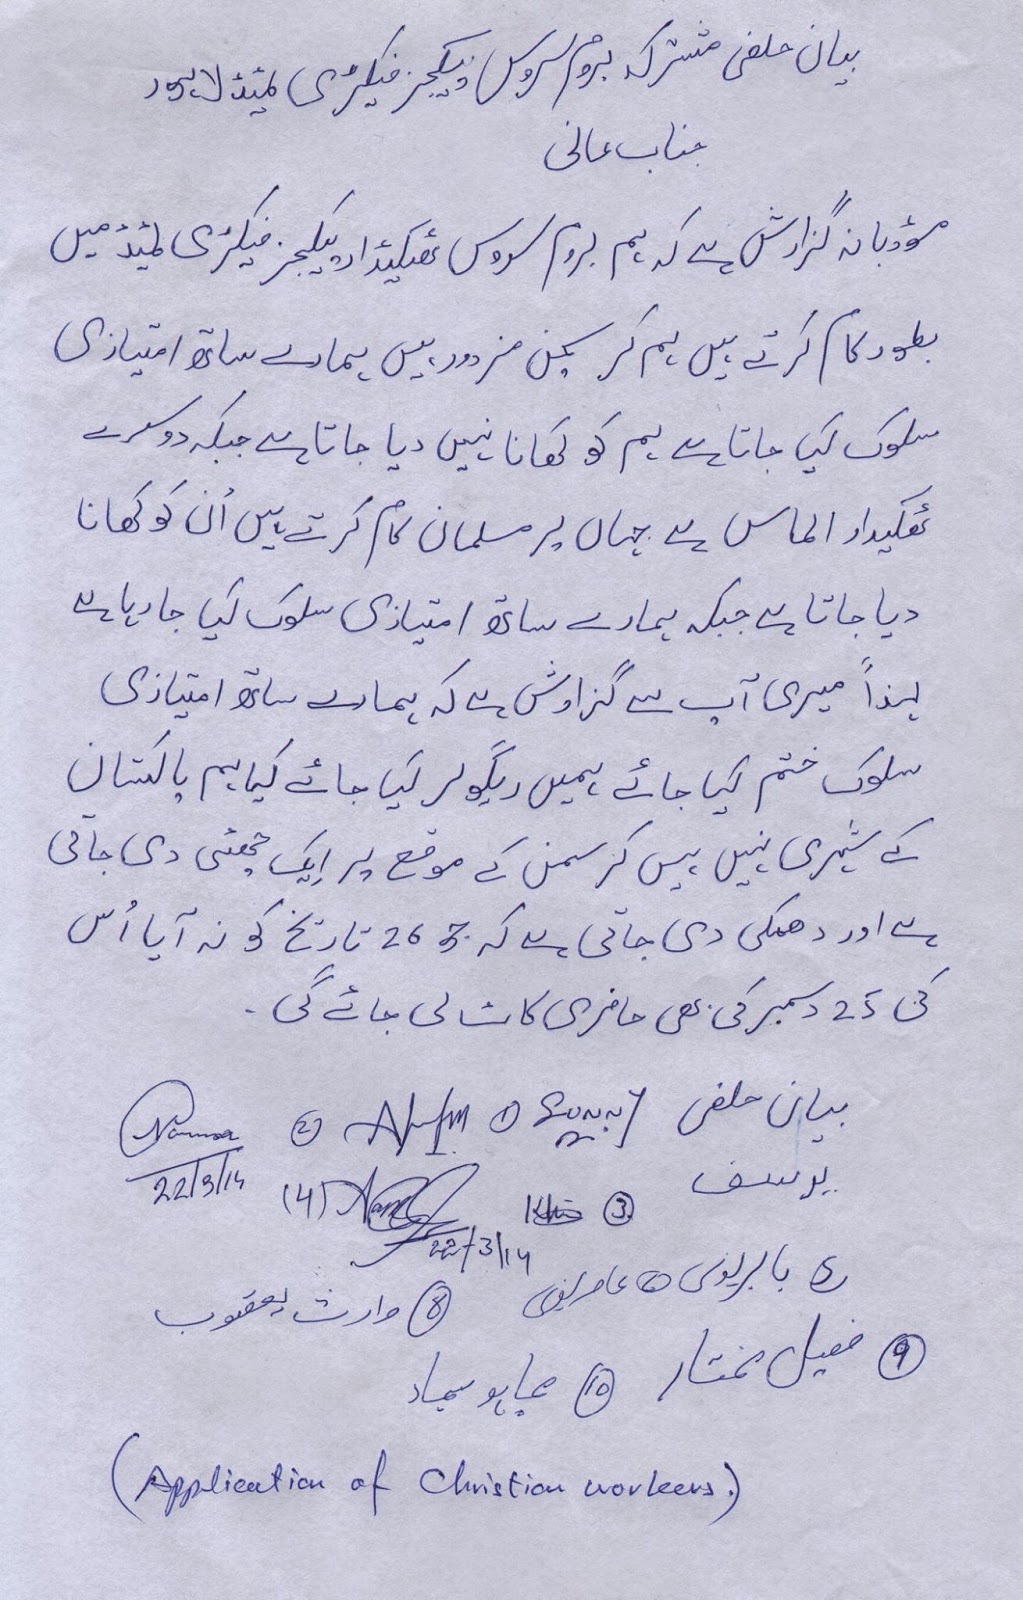 بیان حلفی مشترکہ بروم سروس پیکجز فیکٹری لمیٹڈ لاہور
جناب عالی
مؤدبانہ گزارش ہے کہ ہم بروم سروس ٹھیکیدار پیکجز فیکٹری لمیٹڈ میں
بطور کام کرتے ہیں ہم کرسچن مزدور ہیں ہمارے ساتھ امتیازی
سلوک کیا جاتا ہے ہم کو کھانا نہیں دیا جاتا ہے جبکہ دوسرے
ٹھکیدار الماس ہے جہاں پر مسلمان کام کرتے ہیں اُن کو کھانا
دیا جاتا ہے جبکہ ہمارے ساتھ امتیازی سلوک کیا جا رہا ہے
لہذاً میری آپ سے گزارش ہے کہ ہمارے ساتھ امتیازی
سلوک ختم کیا جائے ہمیں ریگولر کیا جائے کیا ہم پاکستان
کے شہری نہیں ہیں کرسمس کے موقع پر ایک چھٹی دی جاتی
ہے اور دھمکی دی جاتی ہے کہ جو 26 تاریخ کو نہ آیا اُس
کی 25 دسمبر کی بھی حاضری کاٹ لی جائے گی۔
بیان حلفی Sunny ① ②
یوسف ③ (4) 22/3/14
22/3/14
بابر یونس عامر ⑧ وارث یعقوب
⑨ مختار ⑩ سجاد
(Application of Christian workers.)